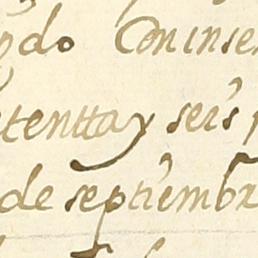 ndo Con inse
tentta y seis p
de septiembr